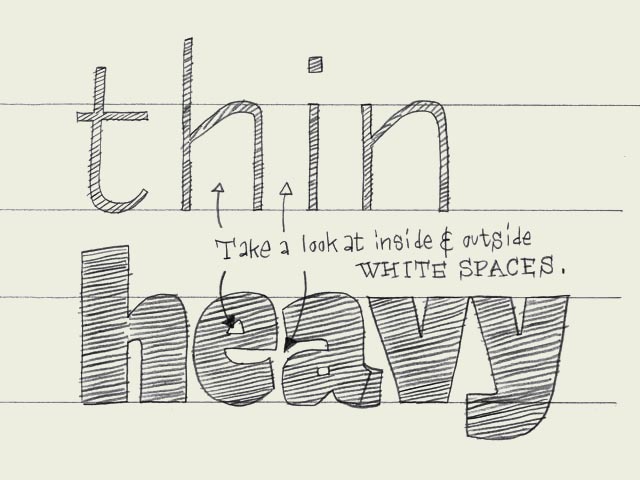 thin
Take a look at inside & outside
WHITE SPACES.
heavy